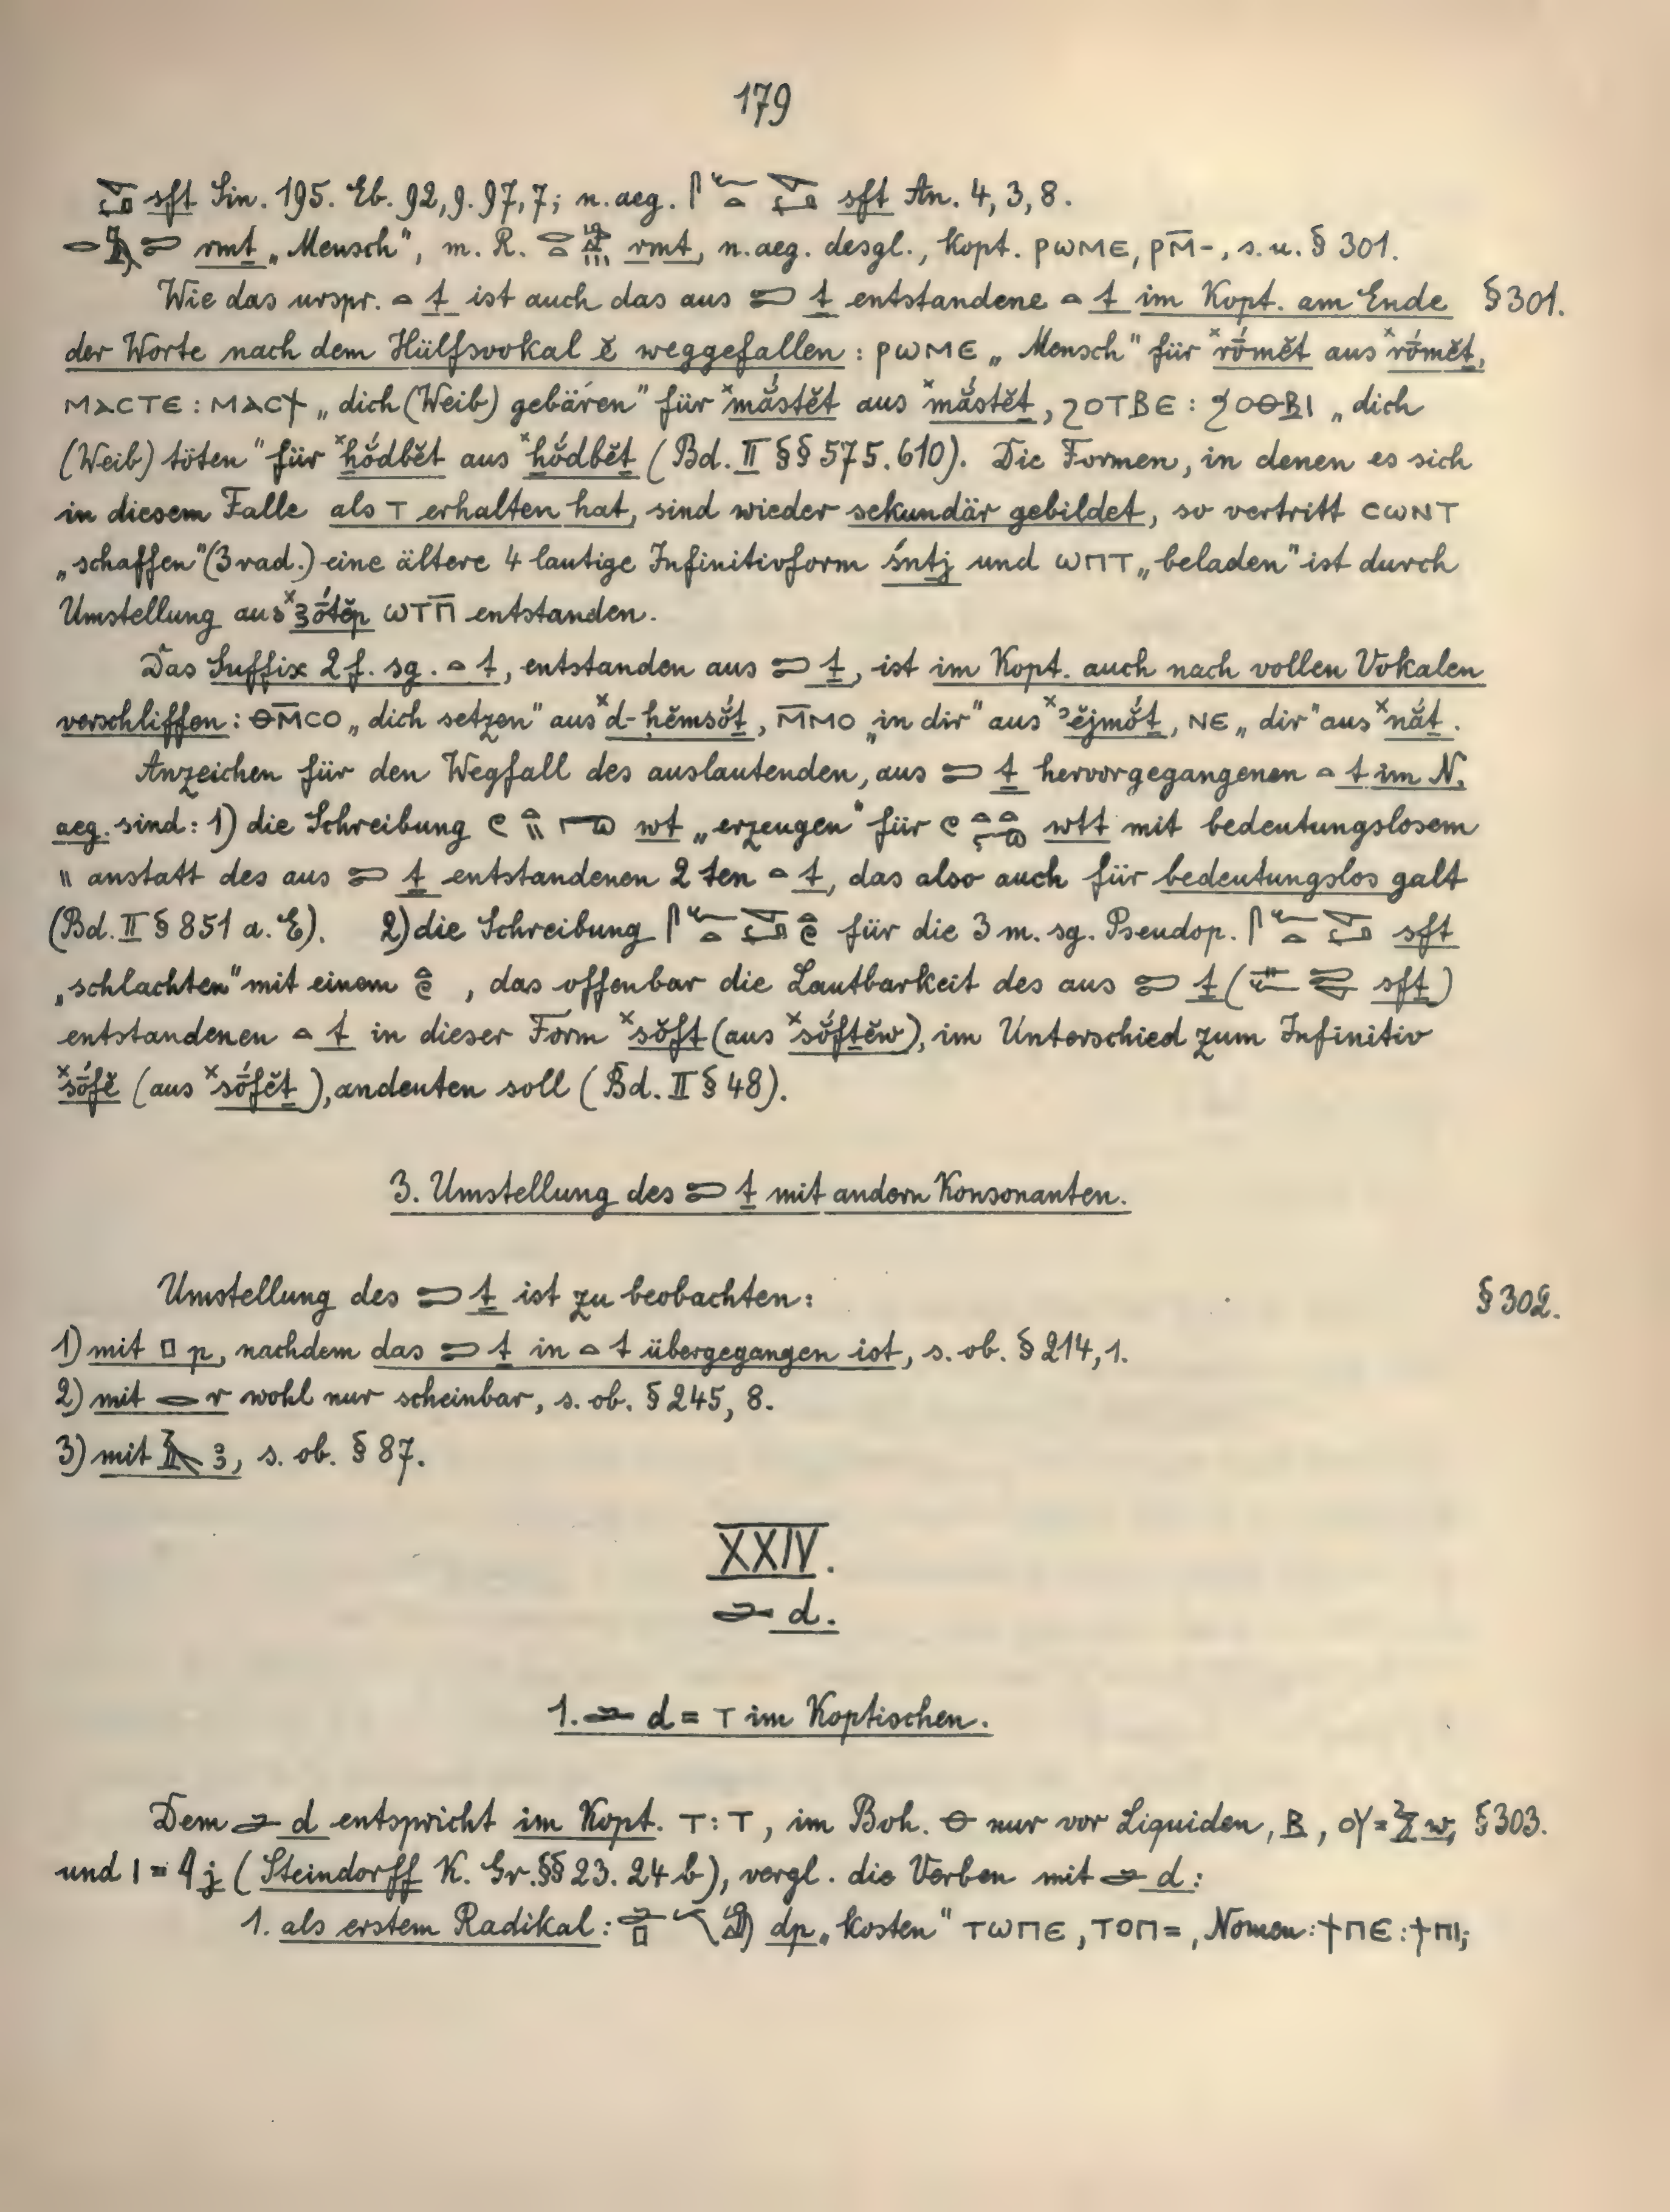 179
sft Sin. 195. Eb. 92,9. 97,7; n. aeg. 𓋴𓆑𓏏 sft An. 4, 3, 8.
𓂋𓅓𓍿 rmṯ „Mensch", m. R. rmt, n. aeg. desgl., Kopt. ⲣⲱⲙⲉ, ⲣⲙ̅-, s. u. § 301.
Wie das urspr. 𓏏 t ist auch das aus 𓍿 ṯ entstandene 𓏏 t im Kopt. am Ende § 301.
der Worte nach dem Hülfsvokal ĕ weggefallen: ⲣⲱⲙⲉ „Mensch" für ˣrṓmĕt aus ˣrṓmĕṯ,
ⲙⲁⲥⲧⲉ : ⲙⲁⲥϯ „dich (Weib) gebären" für ˣmắstĕt aus ˣmắstĕṯ, ϩⲟⲧⲃⲉ : ϧⲟⲑⲃⲓ „dich
(Weib) töten" für ˣhŏ́dbĕt aus ˣhŏ́dbĕṯ (Bd. II §§ 575. 610). Die Formen, in denen es sich
in diesem Falle als ⲧ erhalten hat, sind wieder sekundär gebildet, so vertritt ⲥⲱⲛⲧ
„schaffen" (3 rad.) eine ältere 4 lautige Infinitivform śntj und ⲱⲡⲧ „beladen" ist durch
Umstellung aus ˣꜣṓtĕp ⲱⲧⲡ̅ entstanden.
Das Suffix 2 f. sg. 𓏏 t, entstanden aus 𓍿 ṯ, ist im Kopt. auch nach vollen Vokalen
verschliffen: ⲑⲙ̅ⲥⲟ „dich setzen" aus ˣd-ḥĕmsŏ́ṯ, ⲙ̅ⲙⲟ „in dir" aus ˣʾĕjmŏ́ṯ, ⲛⲉ „dir" aus ˣnắṯ.
Anzeichen für den Wegfall des auslautenden, aus 𓍿 ṯ hervorgegangenen 𓏏 t im N.
aeg. sind: 1) die Schreibung wt „erzeugen" für wtt mit bedeutungslosem
\\ anstatt des aus 𓍿 ṯ entstandenen 2 ten 𓏏 t, das also auch für bedeutungslos galt
(Bd. II § 851 a. E). 2) die Schreibung für die 3 m. sg. Pseudop. sft
„schlachten" mit einem 𓏏𓏲, das offenbar die Lautbarkeit des aus 𓍿 ṯ (sfṯ)
entstandenen 𓏏 t in dieser Form ˣsŏ́ft (aus ˣsŏ́fṯĕw), im Unterschied zum Infinitiv
ˣsṓfĕ (aus ˣsṓfĕṯ), andeuten soll (Bd. II § 48).
3. Umstellung des 𓍿 ṯ mit andern Konsonanten.
Umstellung des 𓍿 ṯ ist zu beobachten: § 302.
1) mit 𓊪 p, nachdem das 𓍿 ṯ in 𓏏 t übergegangen ist, s. ob. § 214, 1.
2) mit 𓂋 r wohl nur scheinbar, s. ob. § 245, 8.
3) mit 𓄿 ꜣ, s. ob. § 87.
XXIV.
𓂧 d.
1. 𓂧 d = ⲧ im Koptischen.
Dem 𓂧 d entspricht im Kopt. ⲧ : ⲧ, im Boh. ⲑ nur vor Liquiden, ⲃ, ⲟⲩ = 𓅱 w, § 303.
und ⲓ = 𓇋 j (Steindorff K. Gr. §§ 23. 24 b), vergl. die Verben mit 𓂧 d:
1. als erstem Radikal: 𓂧𓊪 dp „kosten" ⲧⲱⲡⲉ, ⲧⲟⲡ=, Nomen: ϯⲡⲉ : ϯⲡⲓ;